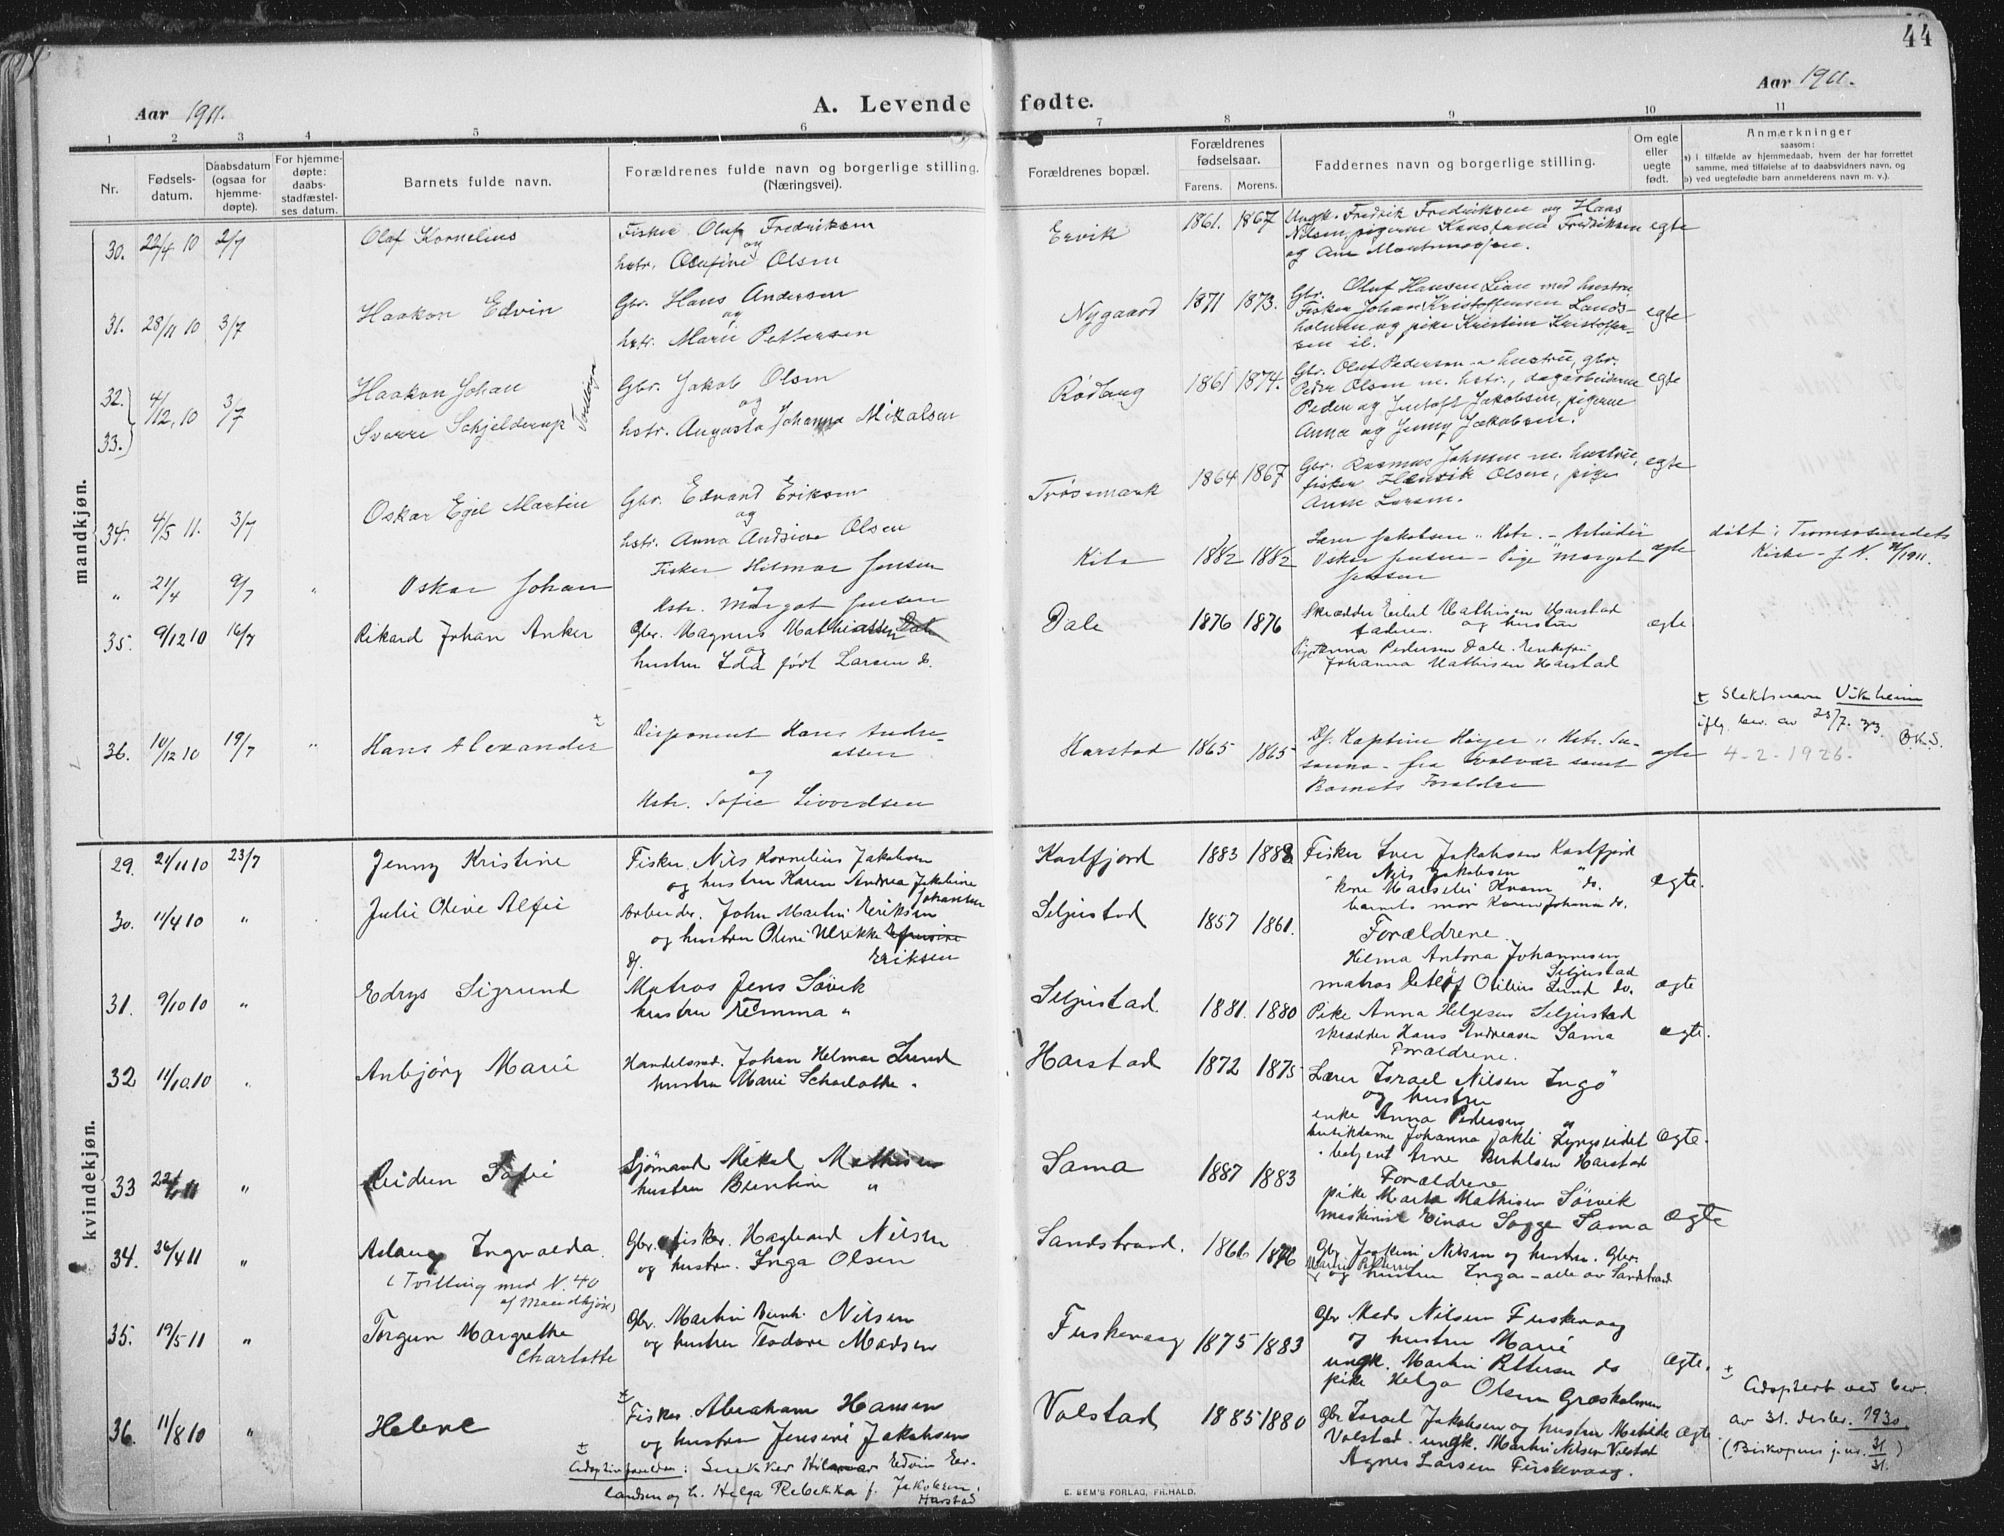 44
Aar 1911.
A. Levende fødte.
Aar 1911.
1 2 3 4 5 6 7 8 9 10 11
Nr.
Fødsels-
datum.
Daabsdatum
(ogsaa for
hjemme-
døpte).
For hjemme-
døpte:
daabs-
stadfæstel-
ses datum.
Barnets fulde navn.
Forældrenes fulde navn og borgerlige stilling.
(Næringsvei).
Forældrenes bopæl.
Forældrenes
fødselsaar.
Farens. Morens.
Faddernes navn og borgerlige stilling.
Om egte
eller
uegte
født.
Anmerkninger
saasom:
a) i tilfælde av hjemmedaab, hvem der har forrettet
samme, med tilføielse af to daabsvidners navn, og
b) ved uegtefødte barn anmelderens navn m. v.).
mandkjøn.
30. 22/4 10 2/7 Olaf Kornelius
Fisker Oluf Fredriksen
og
hstr. Olufine Olsen
Ervik 1861. 1867
Ungk. Fredrik Fredriksen og Hans
Nilsen, pigerne Konstanse Fredriksen
og Ane
egte
31. 28/11 10 3/7 Haakon Edvin
Gbr. Hans Andersen
og
hstr. Marie Pettersen
Nygaard 1871 1873.
Gbr. Oluf Hansen Lian med hustru
Fisker Johan Kristoffersen Lands-
holmen og pike Kristine Kristoffer-
sen ib.
egte
32. 33. 4/12, 10 3/7 Haakon Johan
Sverre Schjelderup
Tvillinger
Gbr. Jakob Olsen
og
hstr. Augusta Johanna Mikalsen
Rødhaug 1861 1874.
Gbr. Oluf Pedersen m hustru, gbr.
Peder Olsen m. hstr., dagarbeiderne
Peder og Gustaft Jakobsen, pigerne
Anna og Jenny Jakobsen.
egte
34. 4/5 11. 3/7 Oskar Egil Martin
Gbr. Edvard Eriksen
og
hstr. Anna Andsine Olsen
Trøsemark 1864 1867
Gbr. Rasmus Johnsen m. hustru,
fisker Henrik Olsen, pige
Anne Larsen.
egte
" 21/4 9/7 " Oskar Johan
Fisker Hilmar Jensen
og
Hstr. Margot Jensen
Kila 1882 1882
Lærer Jakobsen " Hstr. - Arbeider
Oskar Jensen - Pige Margot
Jensen
egte
døbt i Tromsøsundets
Kirke - J. N. 1911.
35. 9/12 10 16/7 Rikard Johan Anker
Gbr. Magnus Mathiassen Dale
og
hustru Ida født Larsen ds.
Dale 1876 1876
Skrædder Eilert Mathisen Harstad
faderen. og hustru
Pige Anna Pedersen Dale. Enkefru
Johanna Mathisen Harstad
egte
36. 10/12 10 19/7 " Hans Alexander ±
Disponent Hans Andre-
assen
og
Hstr. Sofie Sivordsen
Harstad 1865 1865
Df. Kaptein Høyer " Hstr. Su-
sanna - fra Svolvær samt
Barnets Forældre
egte
± Slektsnavn Vikeheim
iflg. bev. av 25/7. 33. O.K.S.
4-2-1926.
kvindekjøn.
29. 21/11 10 23/7 Jenny Kristine
Fisker Nils Kornelius Jakobsen
og hustru Karen Andrea Jakobine
Johansen
Kasfjord 1883 1888
Fisker Iver Jakobsen Kasfjord
Nils Jakobsen "
" kone Marselie Kvam ds.
barnets mor Karen Johanna ds.
egte.
30. 11/4 10 " Julie Olive Alfie
Arbeider. John Martin Eriksen
og hustru Oline Ulrikke
Eriksen
Seljestad 1857 1861.
Forældrene.
Helma Antona Johannesen
Seljestad
matros Detlof Otilius Lund ds.
egte
31. 9/10 10 " Edrys Sigrund
Df. Matros Jens Søvik
hustru Emma "
Seljestad. 1881. 1880
Pike Anna Helgesen Seljestad
skrædder Hans Andreasen Sama
Forældrene.
egte.
32 11/10.10 " Anbjørg Marie
Handelsrd. Johan Helmar Lund
hustru Marie Scharlotte "
Harstad 1872 1875
Lærer Israel Nilsen Ingø
og hustru
enke Anna Pedersen "
butikdame Johanna Jakli Lyngseidet
betjent Arne Berthelsen Harstad
egte.
33 22/6 11 " Reidun Sofie
Sjømand Mikal Mathisen
hustru Berntine "
Sama 1887 1883
Forældrene
pike Marta Mathisen Sørvik
maskinist Einar Sogge Sama
egte
34. 26/4 11 " Aslaug Ingvalda.
(Tvilling med N. 40
af Mandkjøn)
Gbr. fisker. Hagbard Nilsen
og hustru. Inga Olsen
Sandstrand. 1866 1876
Gbr Joakim Nilsen og hustru. Gbr.
og hustru Inga - alle av Sandstrand
35. 19/5 11 " Torgun Margrethe
Charlotte
Gbr. Martin Bernh. Nilsen
og hustru Teodore Madsen
Fuskevaag 1875 1883
Gbr Mads Nilsen Fuskevaag
og hustru Marie
ungk. Martin Pettersen ds
pike Helga Olsen Græsholmen
egte.
36. 11/8 10 " Helene
± Fisker Abraham Hansen
og hustru Jensine Jakobsen
± Adoptivforeldre: Snekker Hilmar Edvin Er-
landsen og h. Helga Rebekka f. Jakobsen.
Harstad
Volstad 1885 1880
Gbr Israel Jakobsen og hustru Matilde
Volstad. ungk. Martin Nilsen Volstad
Agnes Larsen Fuskevaag.
egte
± Adoptert ved bev.
av 31. desbr. 1930
(Biskopens j.nr. 31/31.)
E. SEM'S FORLAG, FR.HALD.